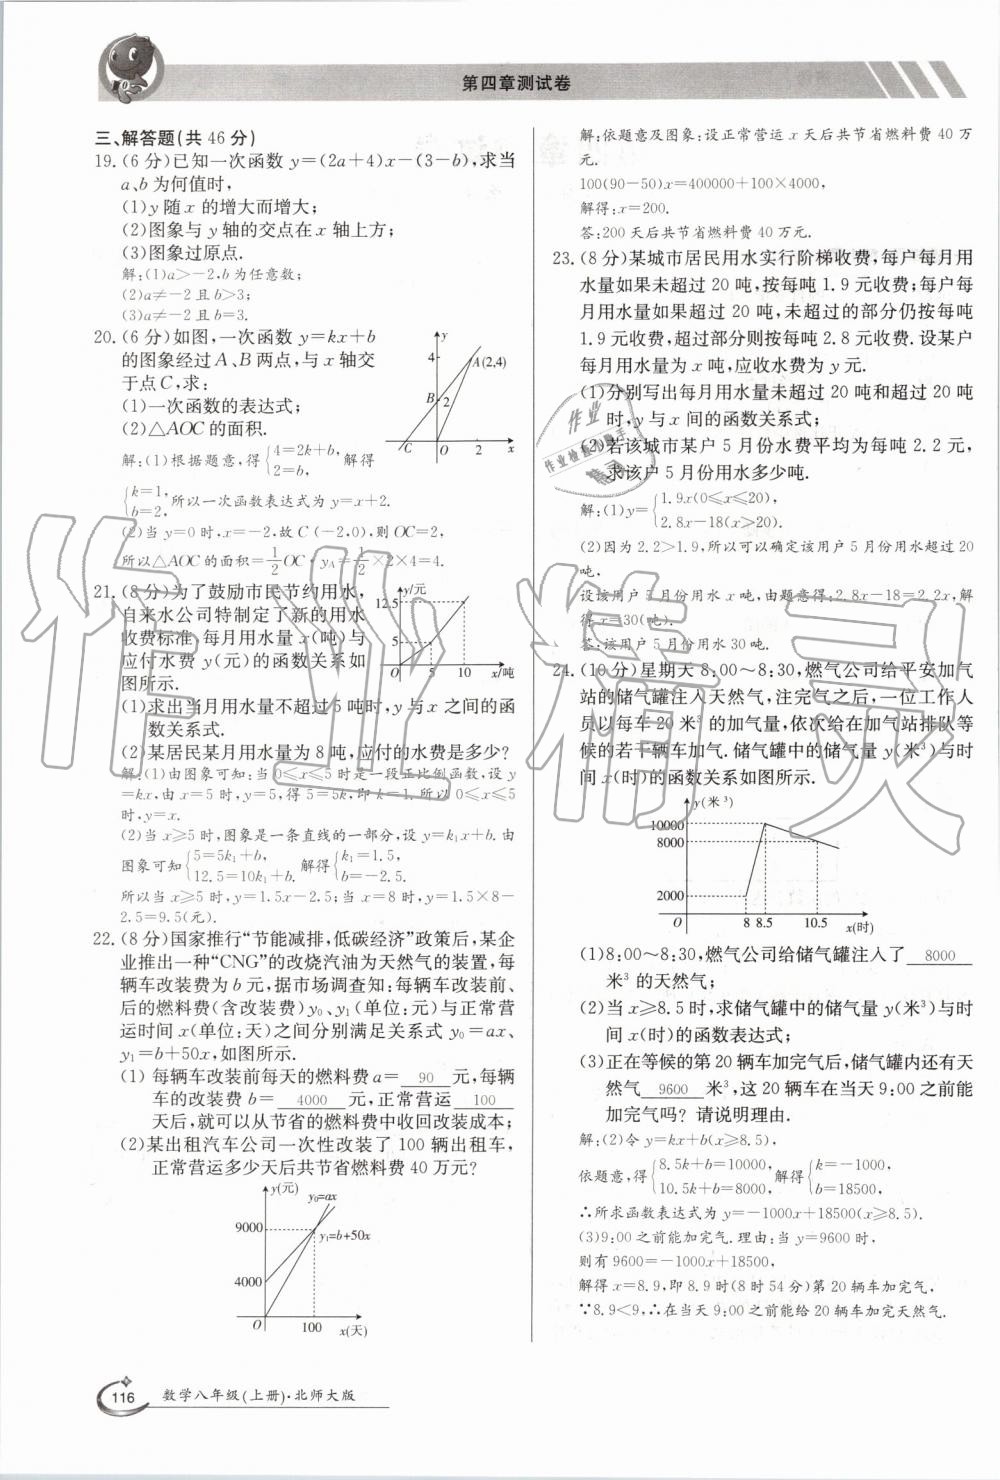 第四章测试卷
三、解答题(共 46 分)
19.(6 分)已知一次函数 y=(2a+4)x-(3-b),求当
a、b 为何值时,
(1)y 随 x 的增大而增大;
(2)图象与 y 轴的交点在 x 轴上方;
(3)图象过原点.
解:(1)a>-2,b 为任意数;
(2)a≠-2 且 b>3;
(3)a≠-2 且 b=3.
20.(6 分)如图,一次函数 y=kx+b
的图象经过 A、B 两点,与 x 轴交
于点 C,求:
(1)一次函数的表达式;
(2)△AOC 的面积.
y
4
A(2,4)
B
2
C
O
2
x
解:(1)根据题意,得{4=2k+b, 2=b, 解得
{k=1, b=2, 所以一次函数表达式为 y=x+2.
(2)当 y=0 时,x=-2,故 C (-2,0),则 OC=2,
所以△AOC 的面积=1/2 OC·yA=1/2×2×4=4.
21.(8 分)为了鼓励市民节约用水,
自来水公司特制定了新的用水
收费标准,每月用水量 x(吨)与
应付水费 y(元)的函数关系如
图所示.
y/元
12.5
5
O
5
10
x/吨
(1)求出当月用水量不超过 5 吨时,y 与 x 之间的函
数关系式.
(2)某居民某月用水量为 8 吨,应付的水费是多少?
解:(1)由图象可知:当 0≤x≤5 时是一段正比例函数,设 y
=kx,由 x=5 时,y=5,得 5=5k,即 k=1. 所以 0≤x≤5
时,y=x.
(2)当 x≥5 时,图象是一条直线的一部分,设 y=k₁x+b. 由
图象可知{5=5k₁+b, 12.5=10k₁+b. 解得{k₁=1.5, b=-2.5.
所以当 x≥5 时,y=1.5x-2.5;当 x=8 时,y=1.5×8-
2.5=9.5(元).
22.(8 分)国家推行“节能减排,低碳经济”政策后,某企
业推出一种“CNG”的改烧汽油为天然气的装置,每
辆车改装费为 b 元,据市场调查知:每辆车改装前、
后的燃料费(含改装费)y₀、y₁(单位:元)与正常营
运时间 x(单位:天)之间分别满足关系式 y₀=ax、
y₁=b+50x,如图所示.
(1) 每辆车改装前每天的燃料费 a= 90 元,每辆
车的改装费 b= 4000 元,正常营运 100
天后,就可以从节省的燃料费中收回改装成本;
(2)某出租汽车公司一次性改装了 100 辆出租车,
正常营运多少天后共节省燃料费 40 万元?
y(元)
y₀=ax
9000
y₁=b+50x
4000
O
100
x(天)
解:依题意及图象:设正常营运 x 天后共节省燃料费 40 万
元.
100(90-50)x=400000+100×4000,
解得:x=200.
答:200 天后共节省燃料费 40 万元.
23.(8 分)某城市居民用水实行阶梯收费,每户每月用
水量如果未超过 20 吨,按每吨 1.9 元收费;每户每
月用水量如果超过 20 吨,未超过的部分仍按每吨
1.9 元收费,超过部分则按每吨 2.8 元收费. 设某户
每月用水量为 x 吨,应收水费为 y 元.
(1)分别写出每月用水量未超过 20 吨和超过 20 吨
时,y 与 x 间的函数关系式;
(2)若该城市某户 5 月份水费平均为每吨 2.2 元,
求该户 5 月份用水多少吨.
解:(1)y={1.9x(0≤x≤20), 2.8x-18(x>20).
(2)因为 2.2>1.9,所以可以确定该用户 5 月份用水超过 20
吨.
设该用户 5 月份用水 x 吨,由题意得:2.8x-18=2.2x,解
得 x=30(吨),
答:该用户 5 月份用水 30 吨.
24.(10 分)星期天 8:00～8:30,燃气公司给平安加气
站的储气罐注入天然气,注完气之后,一位工作人
员以每车 20 米³ 的加气量,依次给在加气站排队等
候的若干辆车加气. 储气罐中的储气量 y(米³)与时
间 x(时)的函数关系如图所示.
y(米³)
10000
8000
2000
O
8 8.5
10.5
x(时)
(1)8:00～8:30,燃气公司给储气罐注入了 8000
米³ 的天然气;
(2)当 x≥8.5 时,求储气罐中的储气量 y(米³)与时
间 x(时)的函数表达式;
(3)正在等候的第 20 辆车加完气后,储气罐内还有天
然气 9600 米³,这 20 辆车在当天 9:00 之前能
加完气吗? 请说明理由.
解:(2)令 y=kx+b(x≥8.5),
依题意,得{8.5k+b=10000, 10.5k+b=8000, 解得{k=-1000, b=18500,
∴所求函数表达式为 y=-1000x+18500(x≥8.5).
(3)9:00 之前能加完气. 理由:当 y=9600 时,
则有 9600=-1000x+18500,
解得 x=8.9,即 8.9 时(8 时 54 分)第 20 辆车加完气,
∵8.9<9,∴在当天 9:00 之前能给 20 辆车加完天然气.
116
数学八年级(上册)·北师大版
作业精灵